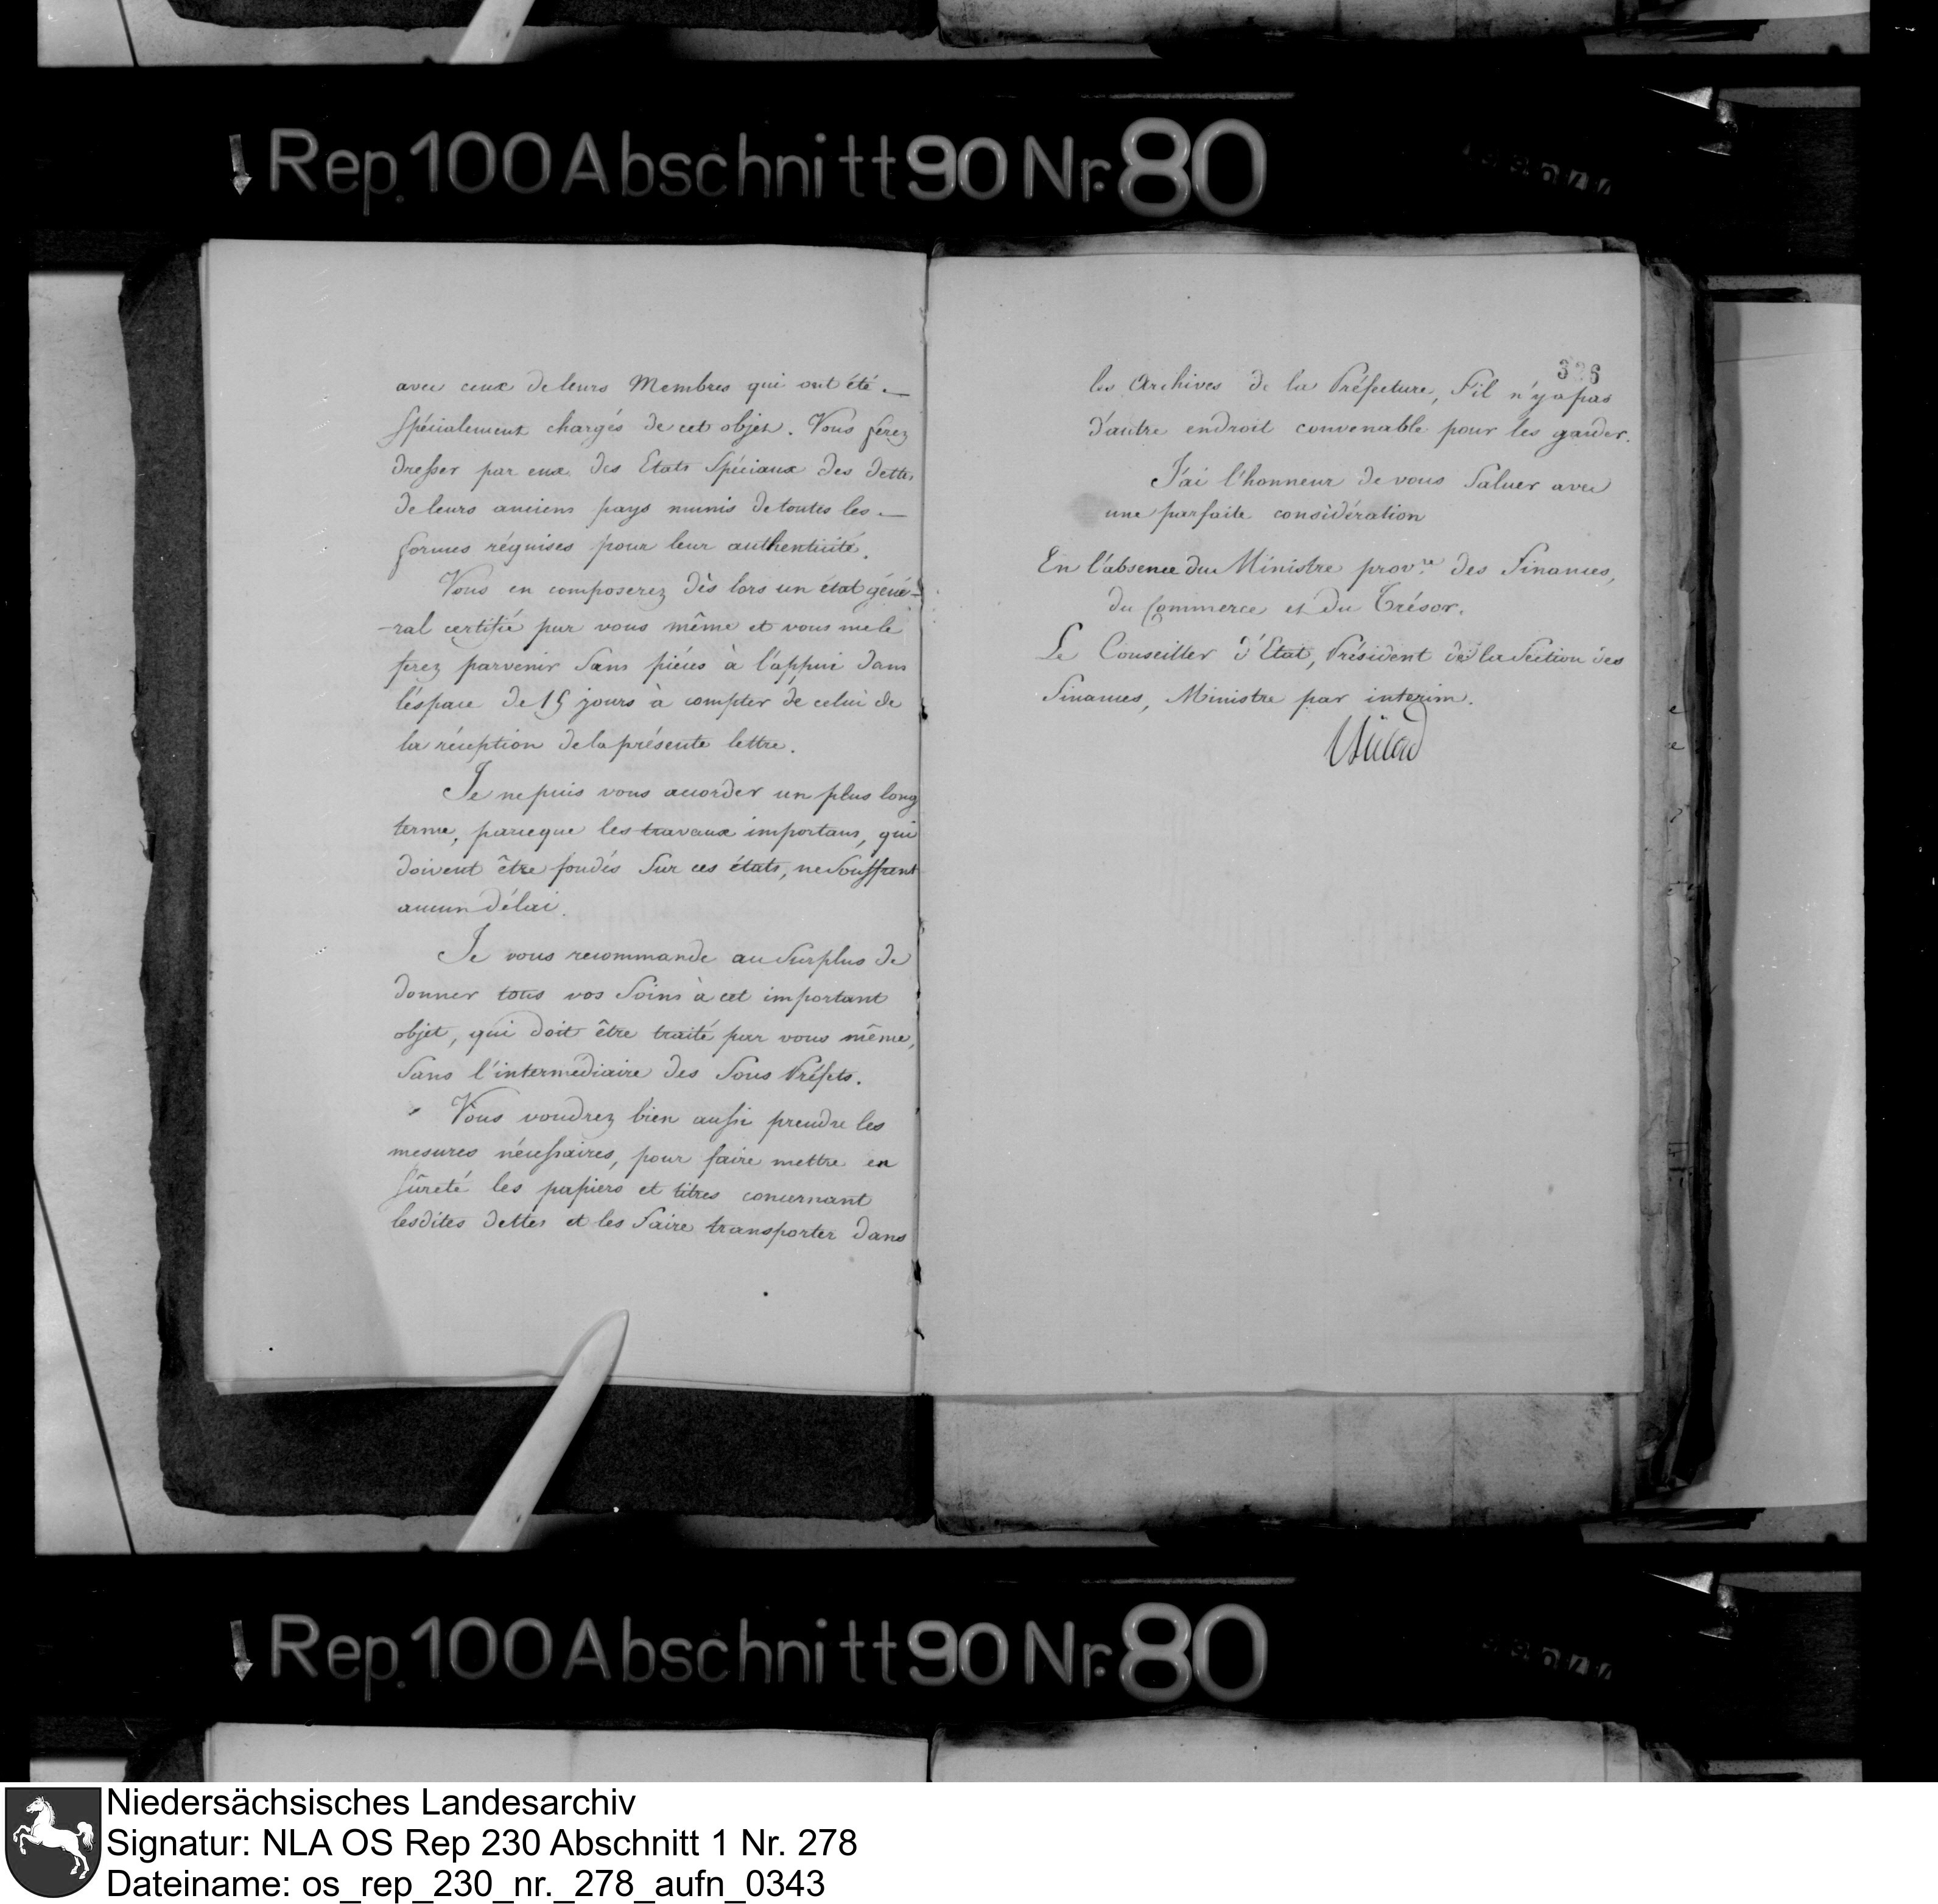 ↓ Rep. 100 Abschnitt 90 Nr. 80
avec ceux de leurs Membres qui ont été
spécialement chargés de cet objet. Vous ferez
dresser par eux des Etats Spéciaux des dettes
de leurs anciens pays munis de toutes les
formes réquises pour leur authenticité.
Vous en composerez dès lors un état géné-
-ral certifié par vous même et vous me le
ferez parvenir sans piéces à l'appui dans
l'éspace de 15 jours à compter de celui de
la réception de la présente lettre.
Je ne puis vous accorder un plus long
terme, parceque les travaux importans, qui
doivent être fondés sur ces états, ne souffrent
aucun délai.
Je vous recommande au surplus de
donner tous vos soins à cet important
objet, qui doit être traité par vous même,
sans l'intermédiaire des Sous Préfets.
Vous voudrez bien aussi prendre les
mesures nécessaires, pour faire mettre en
sûreté les papiers et titres concernant
lesdites dettes et les faire transporter dans
326
les Archives de la Préfecture, s'il n'y a pas
d'autre endroit convenable pour les garder.
J'ai l'honneur de vous saluer avec
une parfaite considération
En l'absence du Ministre prov.re des Finances,
du Commerce et du Trésor.
Le Conseiller d'Etat, Président de la Section des
Finances, Ministre par interim.
↓ Rep. 100 Abschnitt 90 Nr. 80
Niedersächsisches Landesarchiv
Signatur: NLA OS Rep 230 Abschnitt 1 Nr. 278
Dateiname: os_rep_230_nr._278_aufn_0343